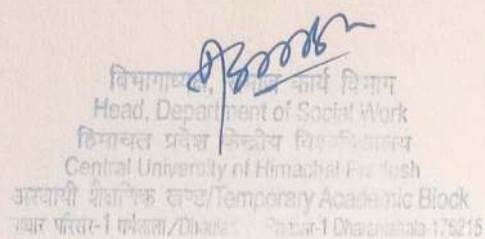 विभागाध्यक्ष, समाज कार्य विभाग
Head, Department of Social Work
हिमाचल प्रदेश केन्द्रीय विश्वविद्यालय
Central University of Himachal Pradesh
अस्थायी शैक्षणिक खण्ड/Temporary Academic Block
परिसर-1 धर्मशाला/ -1 Dharamshala-176215